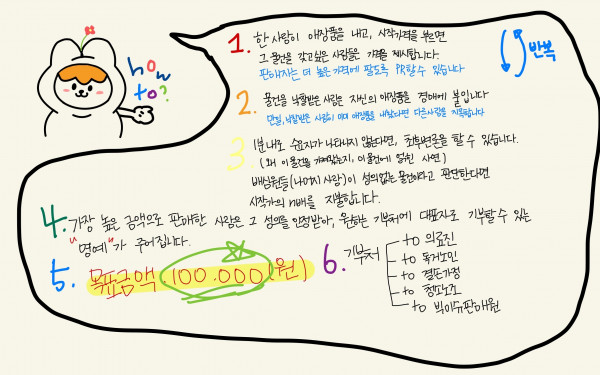 how
to?
1. 한 사람이 애장품을 내고, 시작가격을 부르면
그 물건을 갖고싶은 사람들은 가격을 제시합니다.
판매자는 더 높은 가격에 팔도록 PR할 수 있습니다
반복
2. 물건을 낙찰받은 사람은 자신의 애장품을 경매에 붙입니다
만일, 낙찰받은 사람이 이미 애장품을 내놨다면 다른사람을 지목합니다
3 1분내로 승자가 나타나지 않는다면, 최후변론을 할 수 있습니다.
(왜 이물건을 가져왔는지, 이 물건에 얽힌 사연)
배심원들(나머지 사람)이 성의없는 물건이라고 판단한다면
시작가의 n배를 지불합니다.
4. 가장 높은 금액으로 판매한 사람은 그 성의를 인정받아, 원하는 기부처에 대표자로 기부할 수 있는
"명예"가 주어집니다.
5. 목표금액 100.000(원)
6. 기부처
to 의료진
to 독거노인
to 결손가정
to 청소노조
to 빅이슈판매원